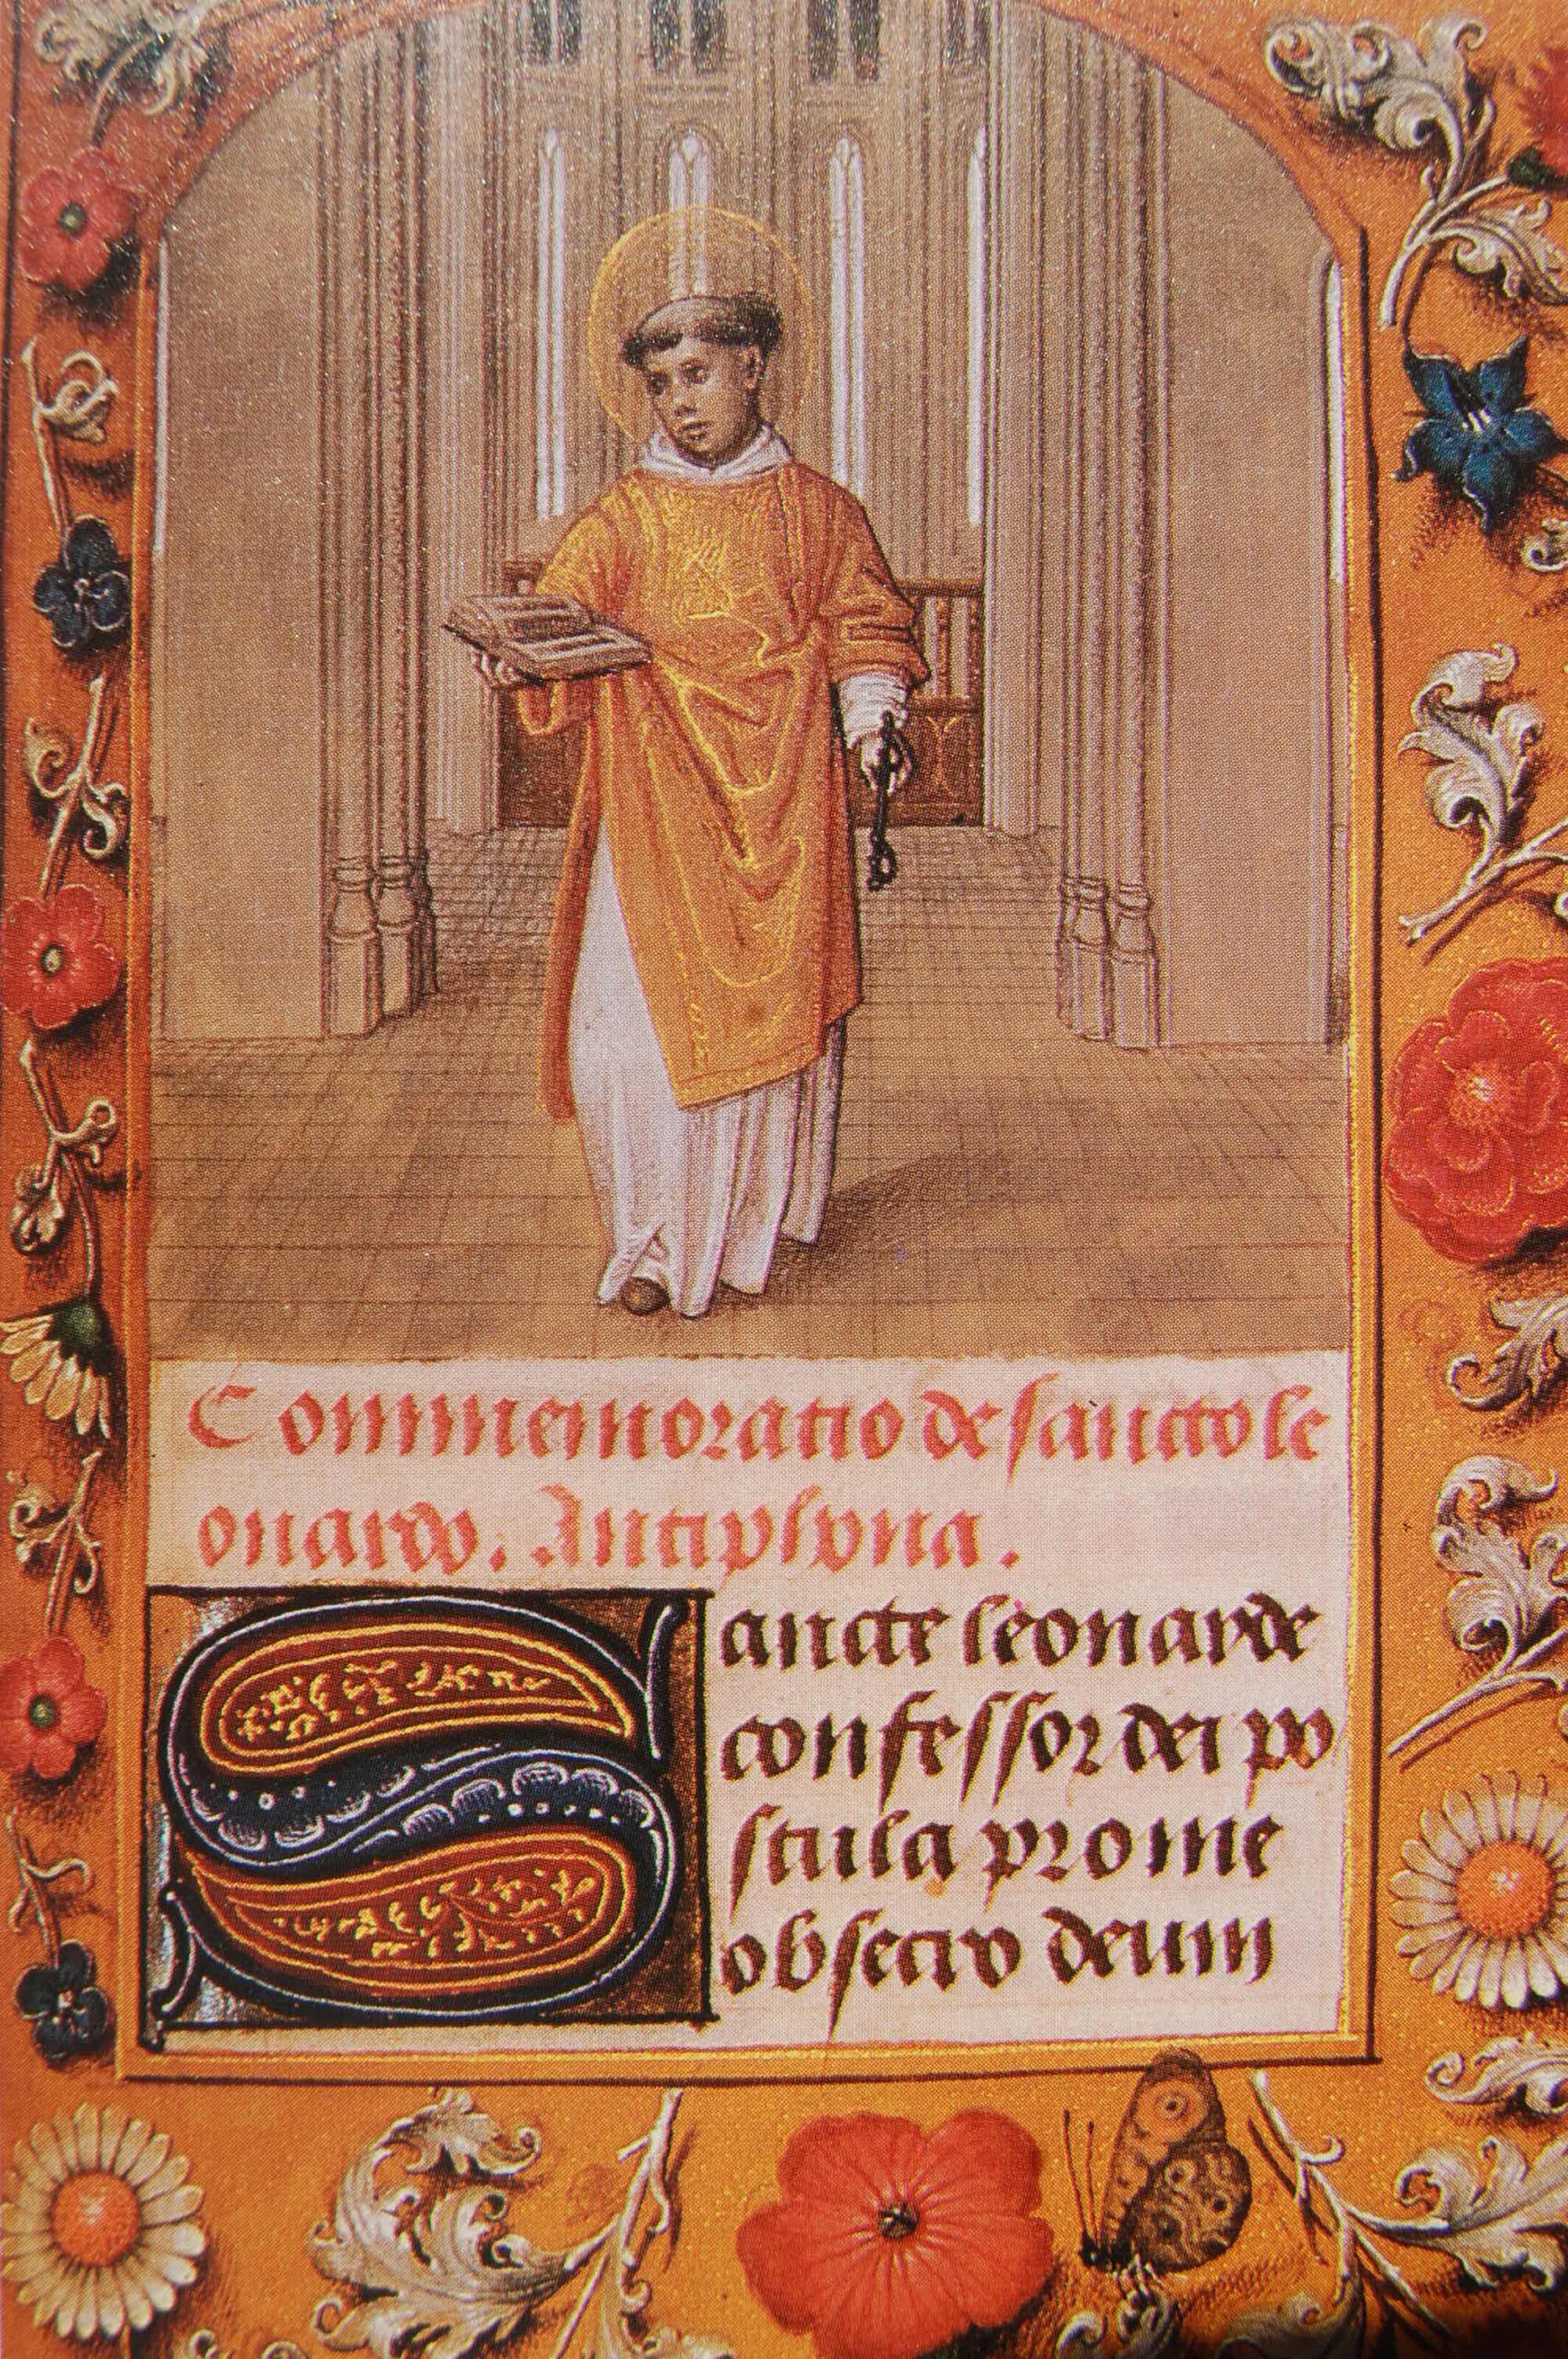 Commemoratio de sancto le
onardo. Antiphona.
Sancte leonarde
confessor dei po
stula pro me
obsecro deum